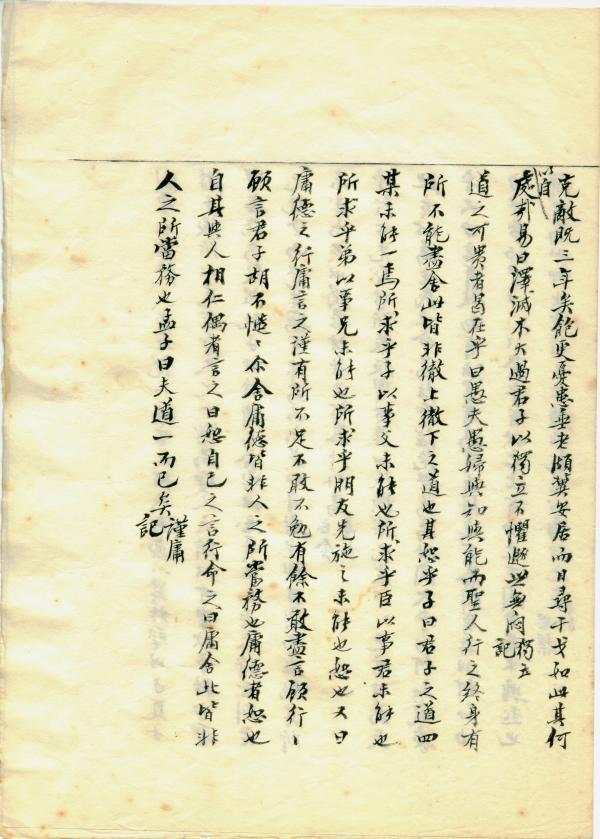 克敵既三年矣飽更憂患垂老頗冀安居而日尋干戈如此其何
以自處哉易曰澤滅木大過君子以獨立不懼遯世無悶獨立記
道之可貴者曷在乎曰愚夫愚婦與知與能而聖人行之終身有
所不能盡舍此皆非徹上徹下之道也其恕乎子曰君子之道四
某未能一焉所求乎子以事父未能也所求乎臣以事君未能也
所求乎弟以事兄未能也所求乎朋友先施之未能也恕也又曰
庸德之行庸言之謹有所不足不敢不勉有餘不敢盡言顧行行
顧言君子胡不慥慥尒舍庸德皆非人之所當務也庸德者恕也
自其與人相仁偶者言之曰恕自己之言行命之曰庸舍此皆非
人之所當務也孟子曰夫道一而已矣謹庸記